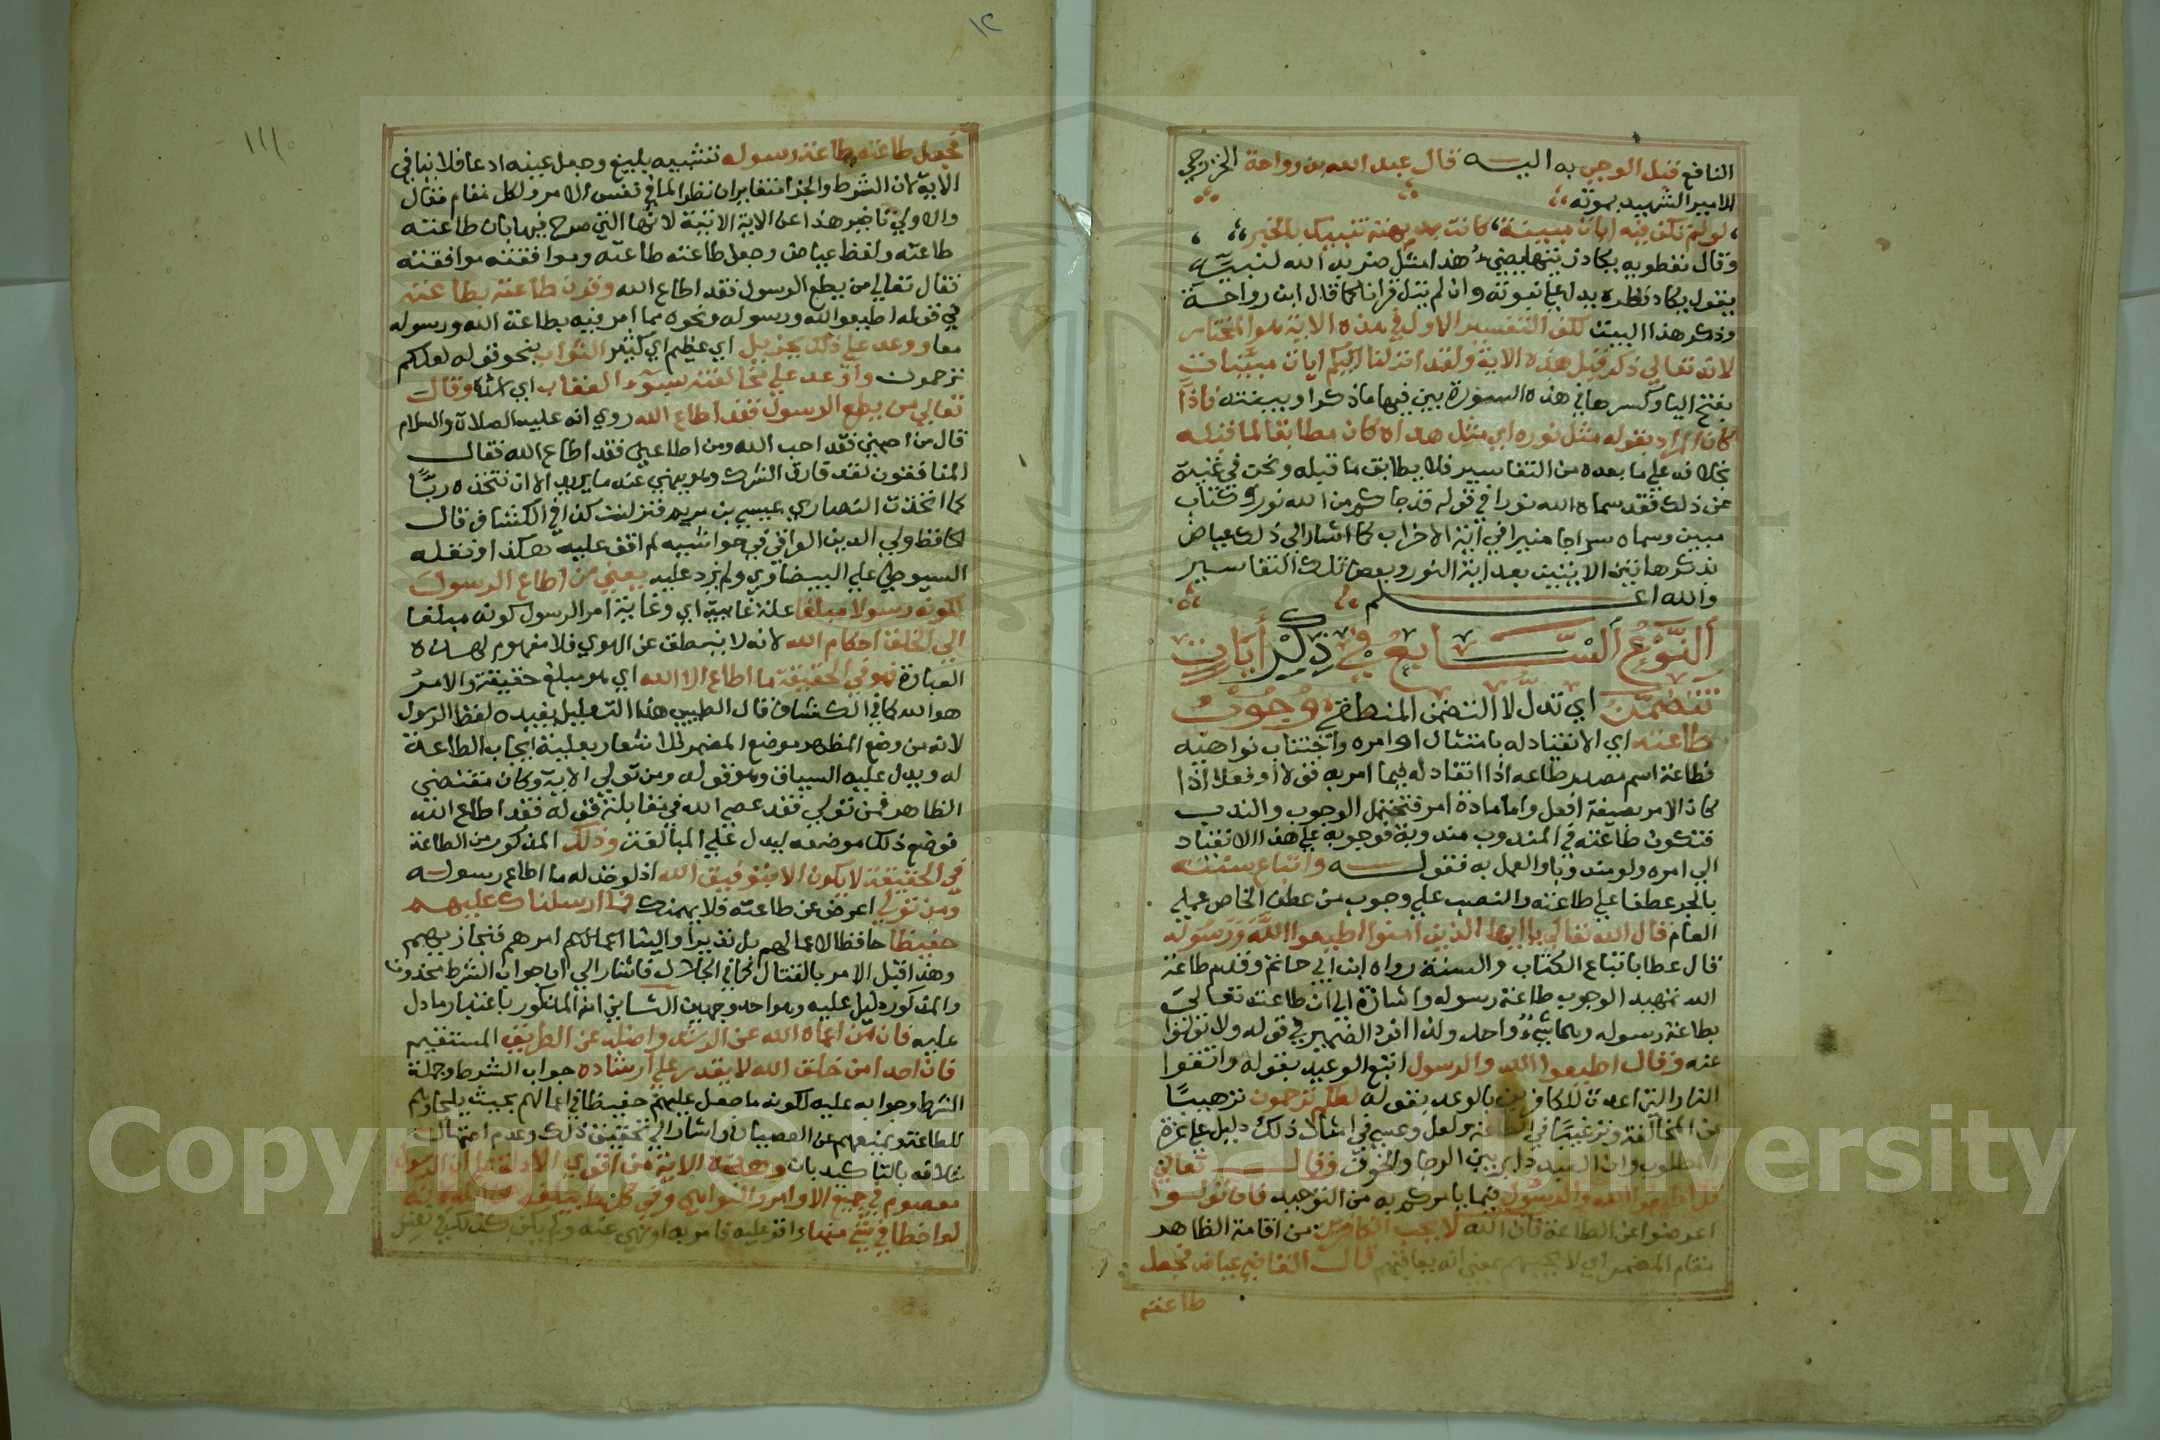 النافع قبل الوحي به اليه قال عبد الله بن رواحة الخزرجي
الامير الشهيد بموتة
لو لم تكن فيه ايات مبينة كانت بديهته تنبيك بالخبر
وقال نفطويه يكاد زيتها يضيء هذا مثل ضربه الله لنبيه
يقول يكاد نظره يدل علي نبوته وان لم يتل قرانا كما قال ابن رواحة
وذكر هذا البيت لكن التفسير الاول في هذه الاية هو المختار
لانه تعالي ذكر قبل هذه الاية ولقد انزلنا اليكم ايات مبينات
بفتح اليا وكسرها في هذه السورة بين فيها ما ذكر او بينته فاذا
كان المراد بقوله مثل نوره اي مثل هداه كان مطابقا لما قبله
بخلافه علي ما بعده من التفاسير فلا يطابق ما قبله ونحن في غنية
عن ذلك فقد سماه الله نورا في قوله قد جاكم من الله نور وكتاب
مبين وسماه سراجا منيرا في اية الاحزاب كما اشار الي ذلك عياض
بذكرهاتين الايتين بعد اية النور وبعض تلك التفاسير
والله اعلم
النوع السابع في ذكر أيات
تتضمن اي تدل لا التضمن المنطقي وجوب
طاعته اي الانقياد له بامتثال اوامره واجتناب نواهيه
فطاعة اسم مصدر طاعه اذا انقاد له فيما امر به قولا او فعلا اذا
كان الامر بصيغة افعل واما مادة امر فتحتمل الوجوب والندب
فتكون طاعته في المندوب مندوبة فوجوبه علي هذا الانقياد
الي امره ولو مندوبا والعمل به فقوله واتباع سنته
بالجر عطفا علي طاعته والنصب علي وجوب من عطف الخاص علي
العام قال الله تعالي يا ايها الذين امنوا اطيعوا الله ورسوله
قال عطا باتباع الكتاب والسنة رواه ابن ابي حاتم وقدم طاعة
الله تمهيد الوجوب طاعة رسوله واشارة الي ان طاعته تعالي
بطاعة رسوله وهما شيء واحد ولذا افرد الضمير في قوله ولا تولوا
عنه وقال اطيعوا الله والرسول اتبع الوعيد بقوله واتقوا
النار التي اعدت للكافرين بالوعد بقوله لعلكم ترحمون ترهيبا
عن المخالفة وترغيبا في الطاعة ولعل وعسي في امثال ذلك دليل علي عزة
المطلوب وان العبد داير بين الرجا والخوف وقال تعالي
قل اطيعوا الله والرسول فيما يامركم به من التوحيد فان تولوا
اعرضوا عن الطاعة فان الله لا يحب الكافرين من اقامة الظاهر
مقام المضمر اي لا يحبهم بمعني انه يعاقبهم قال القاضي عياض فجعل
طاعته
١٢
١١١
فجعل طاعته طاعة رسوله تشبيه بليغ وجعل عينه ادعا فلا ينافي
الاية لان الشرط والجزا متغايران نظرا لما في نفس الامر ولكل مقام مقال
والاولي تاخير هذا عن الاية الاتية لانها التي صرح فيها بان طاعته
طاعته ولفظ عياض وجعل طاعته طاعته وموافقته موافقته
فقال تعالي من يطع الرسول فقد اطاع الله وقرن طاعته بطاعته
في قوله اطيعوا الله ورسوله ونحوه مما امر فيه بطاعة الله ورسوله
معا ووعد علي ذلك بجزيل اي عظيم اي كثير الثواب بنحو قوله لعلكم
ترحمون واوعد علي مخالفته بسوء العقاب اي اشده وقال
تعالي من يطع الرسول فقد اطاع الله روي انه عليه الصلاة والسلام
قال من احبني فقد احب الله ومن اطاعني فقد اطاع الله فقال
المنافقون لقد قارف الشرك وهو ينهي عنه ما يريد الا ان نتخذه ربا
كما اتخذت النصاري عيسي بن مريم فنزلت كذا في الكشاف قال
الحافظ ولي الدين العراقي في حواشيه لم اقف عليه هكذا ونقله
السيوطي علي البيضاوي ولم يزد عليه يعني من اطاع الرسول
لكونه رسولا مبلغا علة غايية اي وغاية امر الرسول كونه مبلغا
الي الخلق احكام الله لانه لا ينطق عن الهوي فلا مفهوم لهذه
العبارة فهو في الحقيقة ما اطاع الا الله اي هو مبلغ حقيقة والامر
هو الله كما في الكشاف قال الطيبي هذا التعليل يفيده لفظ الرسول
لانه من وضع المظهر موضع المضمر للاشعار بعلية ايجاب الطاعة
له ويدل عليه السياق وهو قوله ومن تولي الاية وكان مقتضي
الظاهر فمن تولي فقد عصي الله في مقابلة قوله فقد اطاع الله
فوضع ذلك موضعه ليدل علي المبالغة وذلك المذكور من الطاعة
في الحقيقة لا يكون الا بتوفيق الله اذ لو خذله ما اطاع رسوله
ومن تولي اعرض عن طاعته فلا يهمنك فما ارسلناك عليهم
حفيظا حافظا لاعمالهم بل نذيرا والينا امرهم فنجازيهم
وهذا قبل الامر بالقتال كما في الجلال فاشار الي ان جواب الشرط محذوف
والمذكور دليل عليه وهو احد وجهين الثاني انه المذكور باعتبار ما دل
عليه فان من اعماه الله عن الرشد واضله عن الطريق المستقيم
فان احدا من خلق الله لا يقدر علي ارشاده جواب الشرط وجملة
الشرط وجوابه عليه لكونه ما جعل عليهم حفيظا في اعمالهم بحيث يلجاوهم
للطاعة ويمنعهم عن العصيان واشار الي تحقيق ذلك وعدم احتمال
خلافه بالتاكيد بان وهذه الاية من اقوي الادلة علي ان الرسول
معصوم في جميع الاوامر والنواهي وفي كل ما يبلغه عن الله لانه
لو اخطا في شي منها